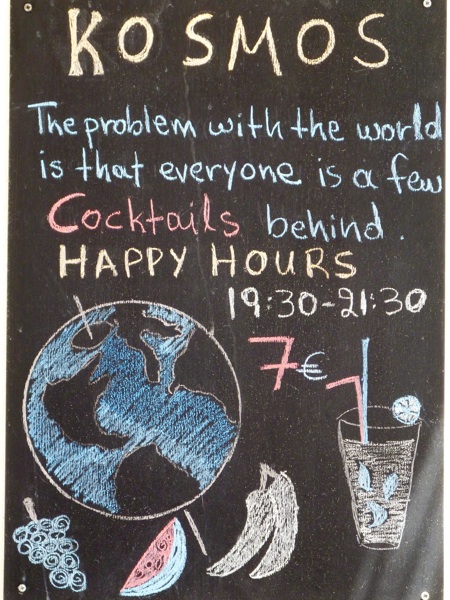 KOSMOS
The problem with the world
is that everyone is a few
Cocktails behind.
HAPPY HOURS
19:30-21:30
7€